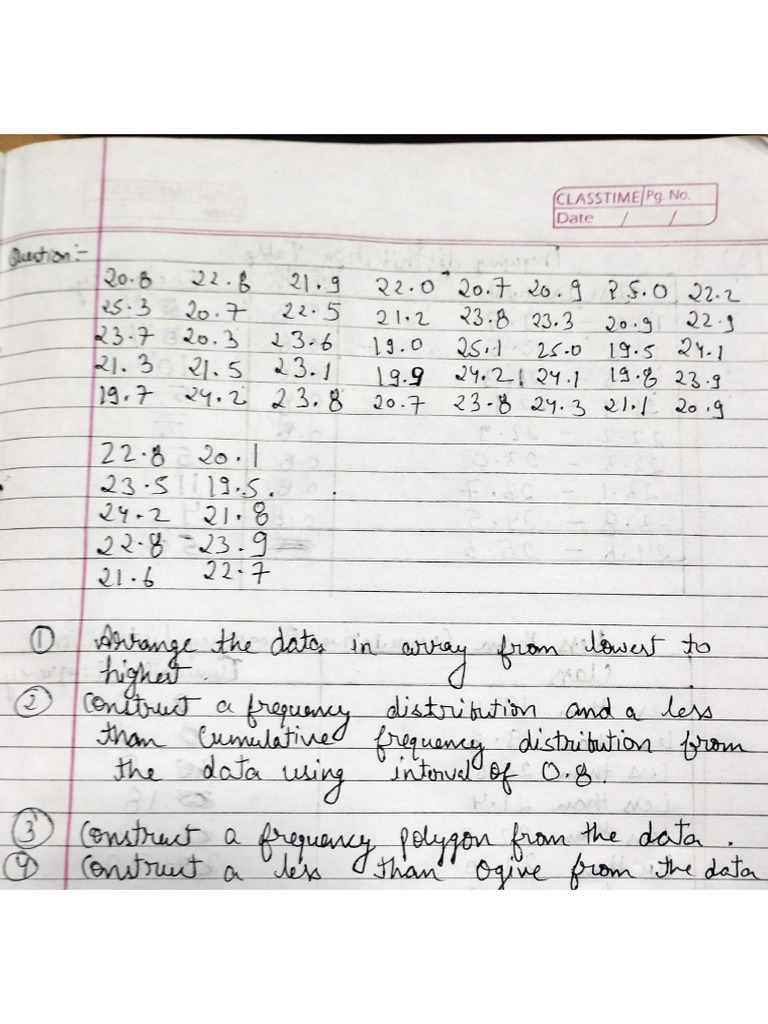 CLASSTIME Pg. No.
Date / /
Question:-
20.8 22.8 21.9 22.0 20.7 20.9 25.0 22.2
25.3 20.7 22.5 21.2 23.8 23.3 20.9 22.9
23.7 20.3 23.6 19.0 25.1 25.0 19.5 24.1
21.3 21.5 23.1 19.9 24.2 24.1 19.8 23.9
19.7 24.2 23.8 20.7 23.8 24.3 21.1 20.9
22.8 20.1
23.5 19.5.
24.2 21.8
22.8 23.9
21.6 22.7
① Arrange the data in array from lowest to
highest.
② Construct a frequency distribution and a less
than Cumulative frequency distribution from
the data using interval of 0.8.
③ Construct a frequency polygon from the data.
④ Construct a less than Ogive from the data